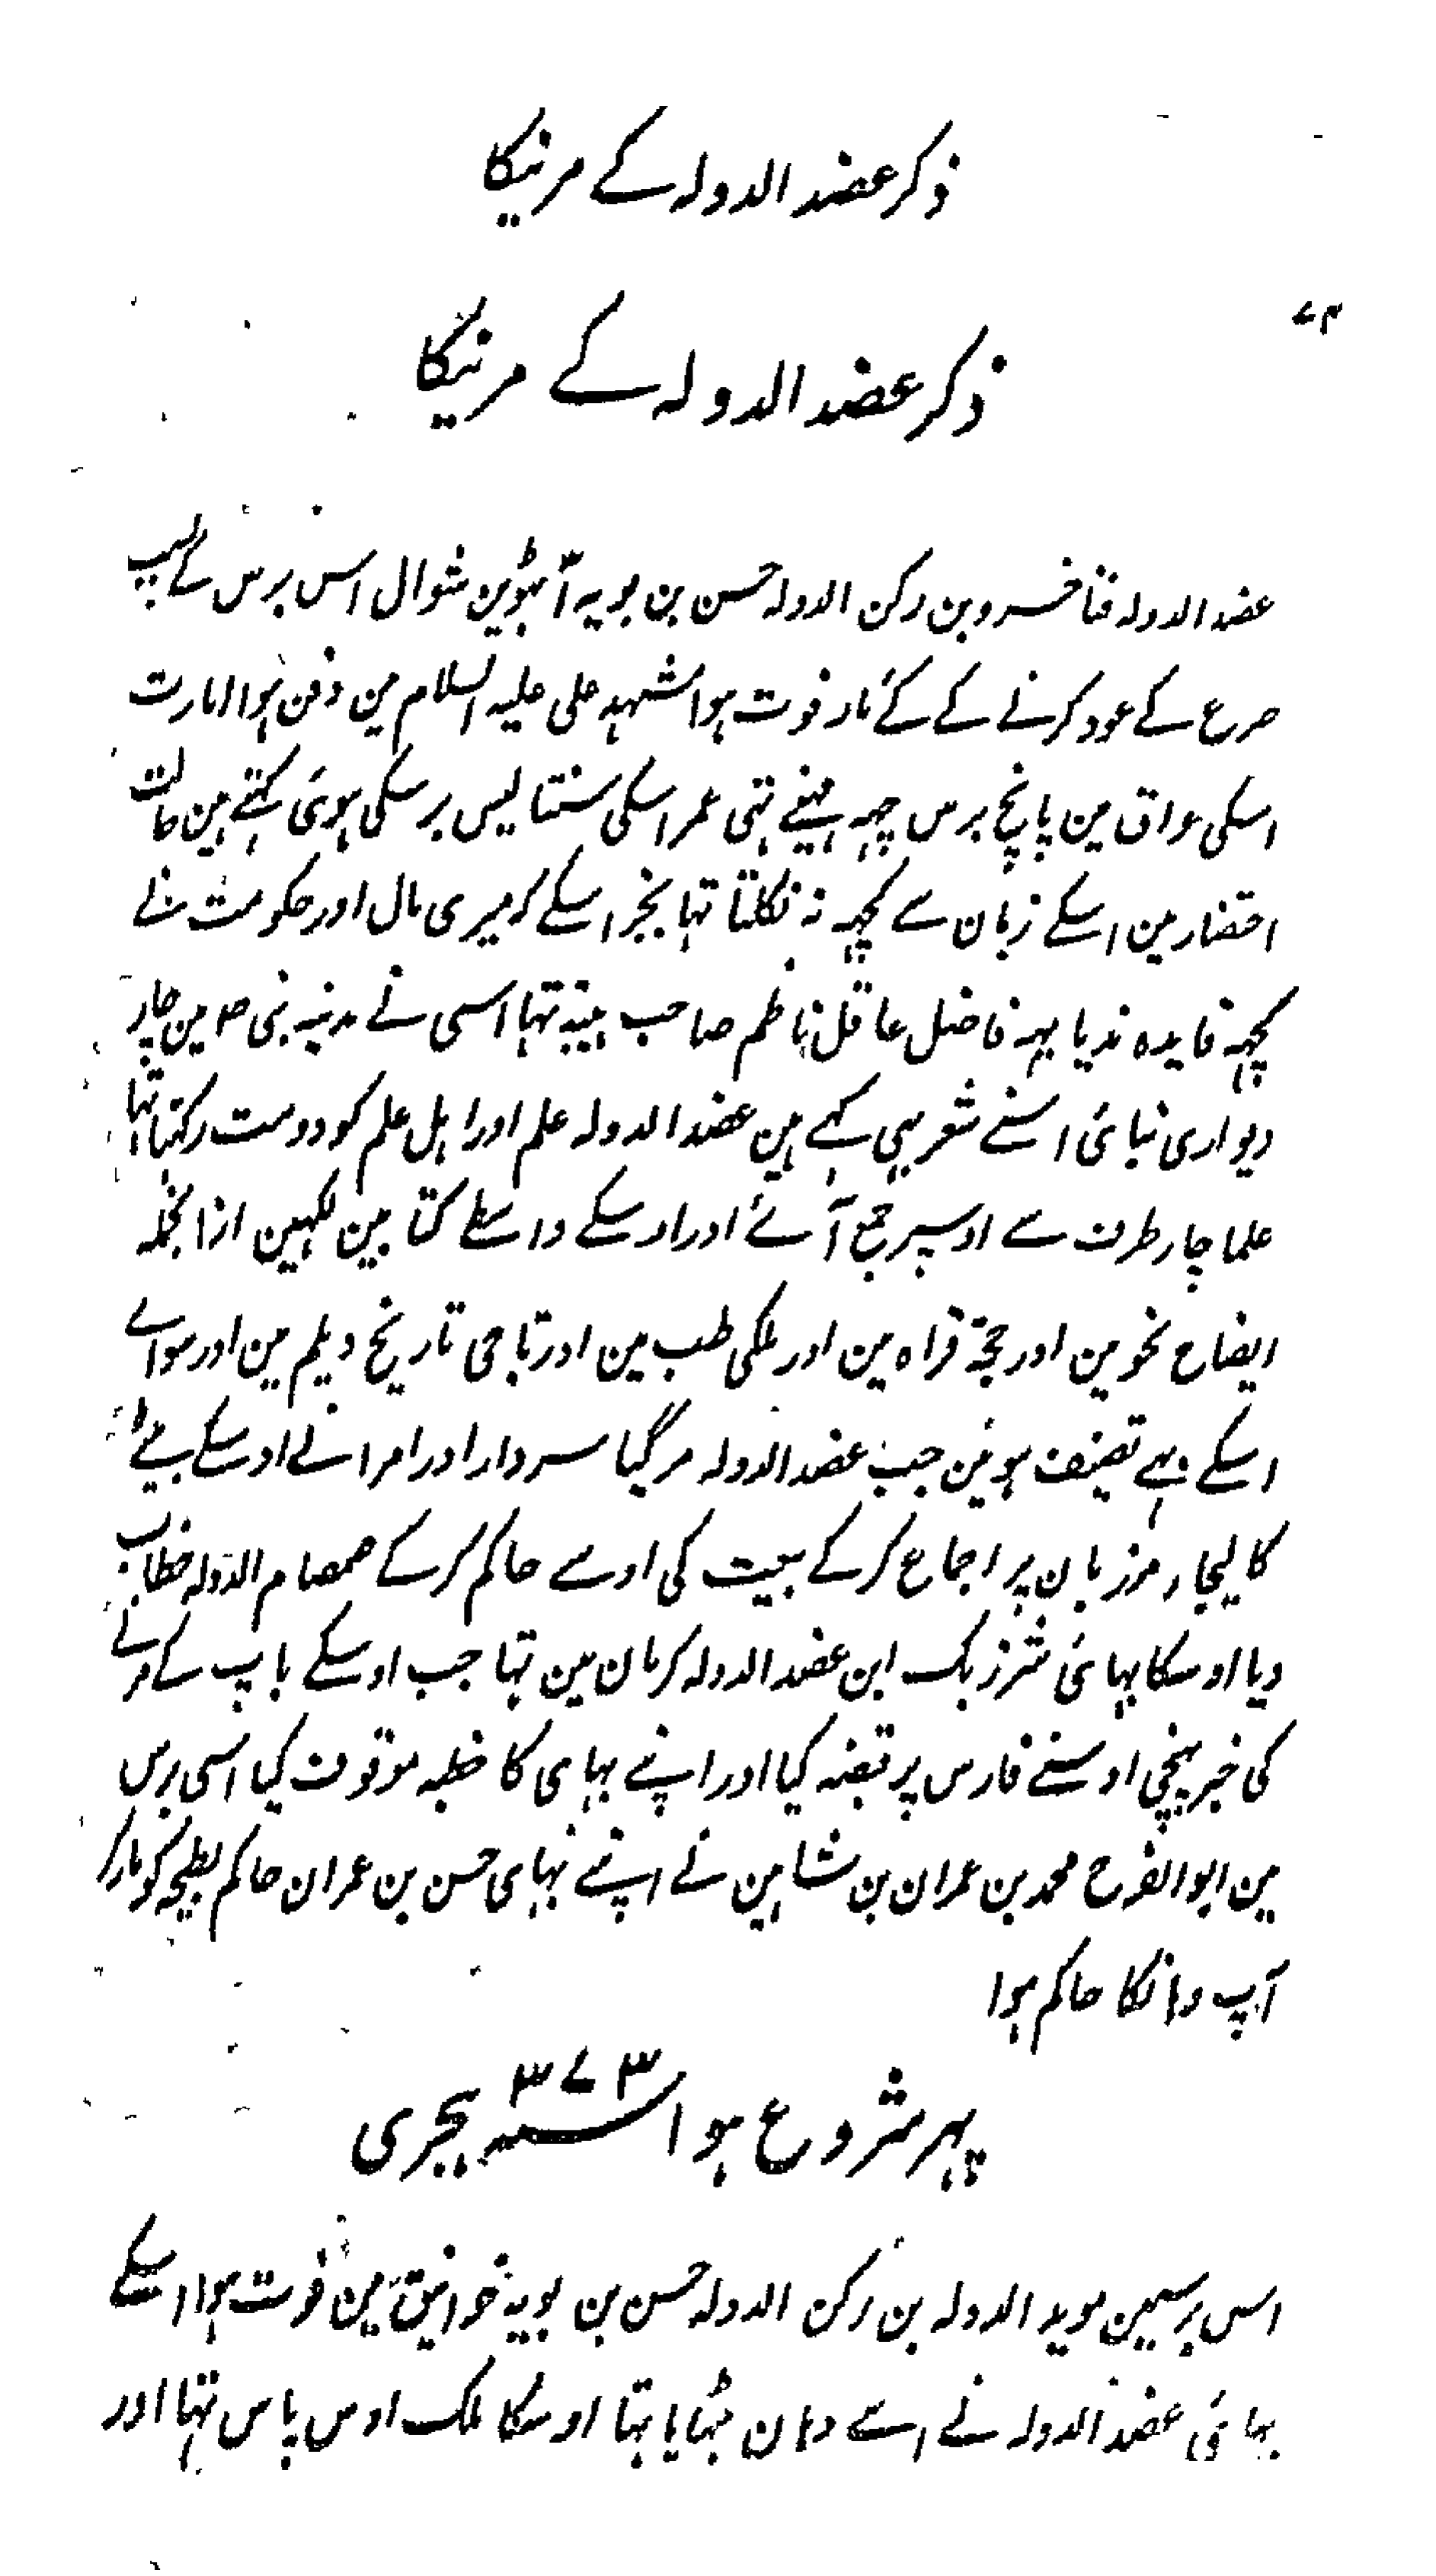 ذکر عضد الدولہ کے مرنیکا
۷۳
ذکر عضد الدولہ کے مرنیکا
عضد الدولہ فناخسرو بن رکن الدولہ حسن بن بویہ آٹہوین شوال اس برس کے بسبب
صرع کے عود کرنے کے کے بار فوت ہوا مشہد علی علیہ السلام مین دفن ہوا امارت
اسکی عراق مین پانچ برس چہہ مہینے تہی عمر اسکی سنتالیس برسکی ہوئی کہتے ہین حالت
احتضار مین اسکے زبان سے کچہہ نہ نکلتا تہا بجز اسکے کہ میری مال اور حکومت نے
کچہہ فایدہ ندیا یہہ فاضل عاقل ناظم صاحب ہیبتہ تہا اسی نے مدینہ نبی ص مین چار
دیواری بنائی اسنے شعر بہی کہے ہین عضد الدولہ علم اور اہل علم کو دوست رکہتا تہا
علما چار طرف سے اوسپر جمع آئے اور اوسکے واسطے کتابین لکہین ازانجملہ
ایضاح نحو مین اور حجۃ قراہ مین اور ملکی طب مین اور تاجی تاریخ دیلم مین اور سواے
اسکے بہے تصنیف ہوئین جب عضد الدولہ مر گیا سردار اور امرا نے اوسکے بیٹے
کالیجار مرزبان پر اجماع کر کے بیعت کی اوسے حاکم کر کے صمصام الدولہ خطاب
دیا اوسکا بہائی شرزبک ابن عضد الدولہ کرمان مین تہا جب اوسکے باپ کے مرنے
کی خبر پہنچی اوسنے فارس پر قبضہ کیا اور اپنے بہای کا خطبہ موقوف کیا اسی برس
مین ابو الفرح محمد بن عمران بن شاہین نے اپنے بہای حسن بن عمران حاکم بطیحہ کو مار کر
آپ وہانکا حاکم ہوا
پہر شروع ہوا سنہ ۳۷۳ ہجری
اس برسمین موید الدولہ بن رکن الدولہ حسن بن بویہ خوانیق مین فوت ہوا اسکے
بہائی عضد الدولہ نے اسے وہان بٹہایا تہا اوسکا ملک اوس پاس تہا اور